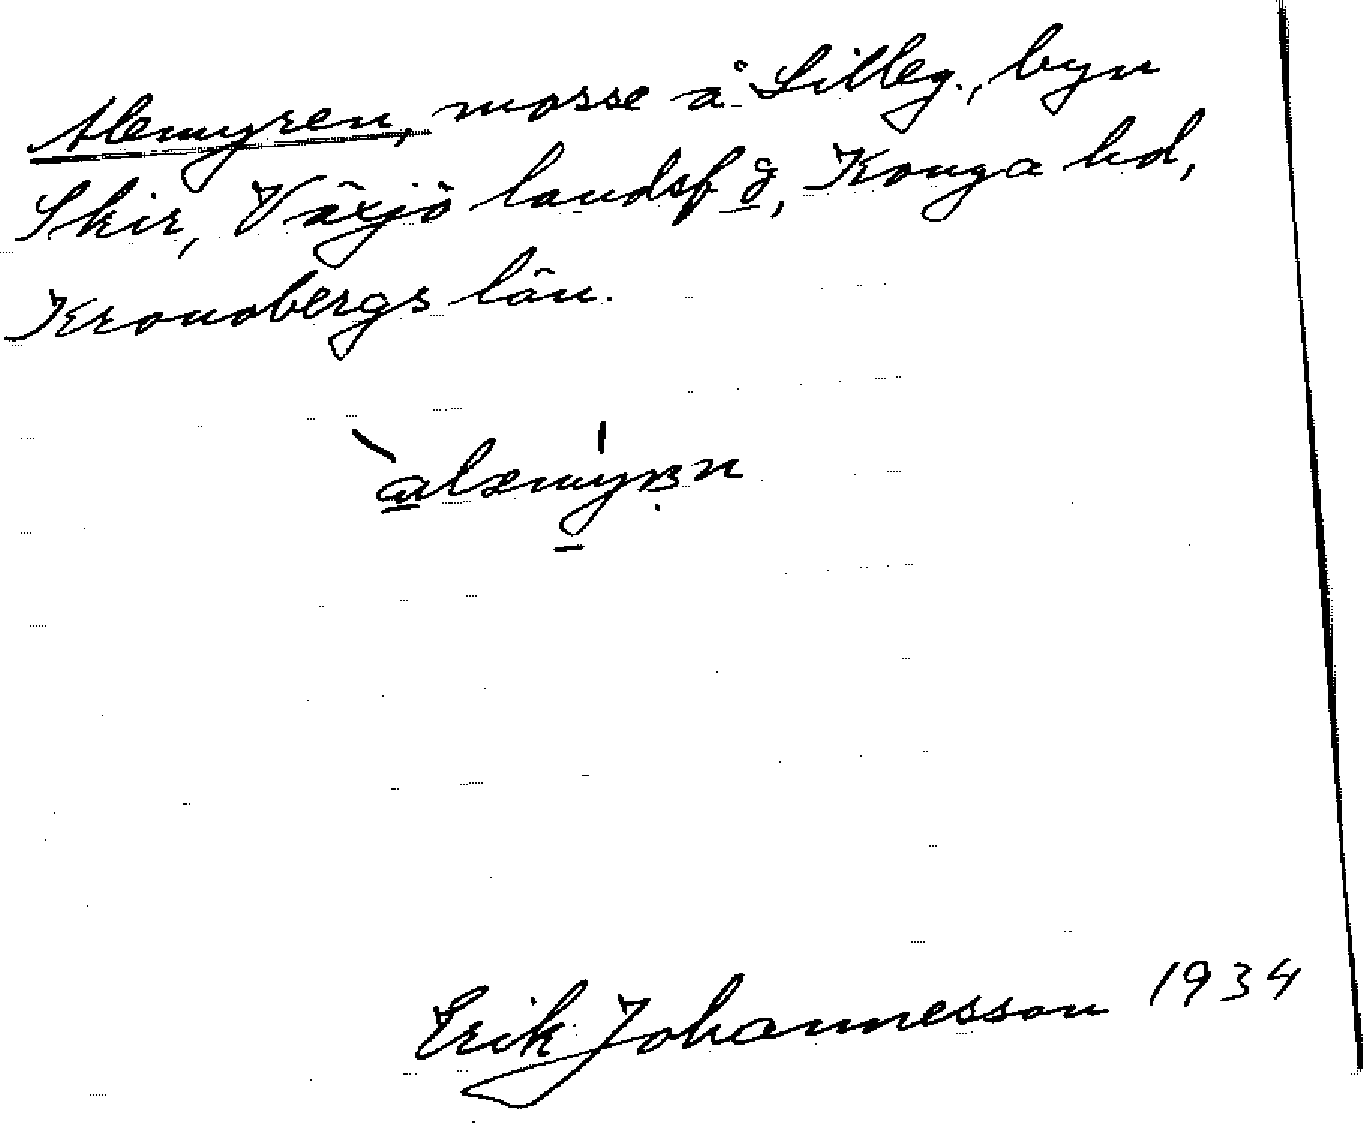 Alemyren, mosse å Lilleg., byn
Skir, Växjö landsf g, Konga hd,
Kronobergs län.
alemyrn
Erik Johannesson 1934